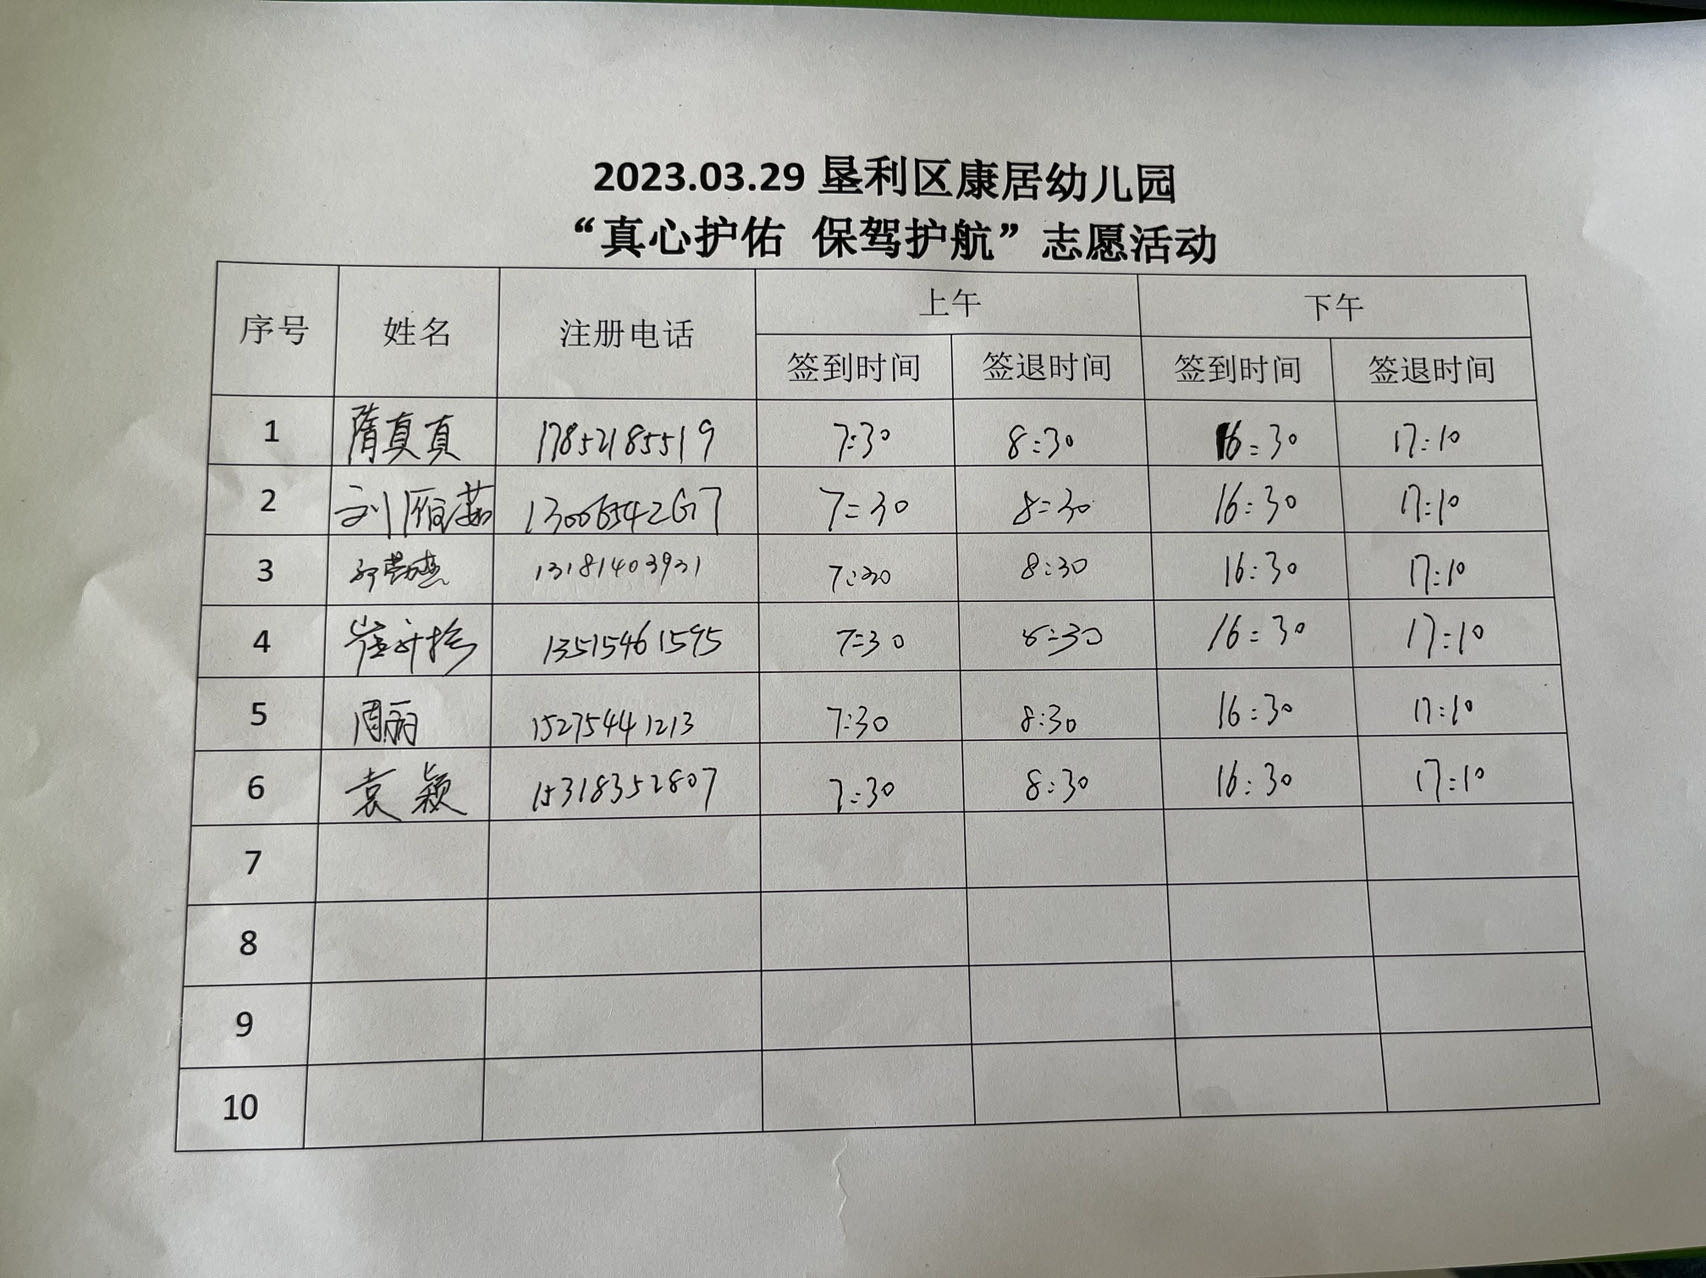 2023.03.29 垦利区康居幼儿园
“真心护佑 保驾护航”志愿活动
序号 姓名 注册电话 上午 下午
签到时间 签退时间 签到时间 签退时间
1 隋真真 17852185519 7:30 8:30 16:30 17:10
2 刘雁茹 7:30 8:30 16:30 17:10
3 13181403931 7:30 8:30 16:30 17:10
4 13515461595 7:30 8:30 16:30 17:10
5 周丽 15275441213 7:30 8:30 16:30 17:10
6 袁颖 15318352807 7:30 8:30 16:30 17:10
7
8
9
10